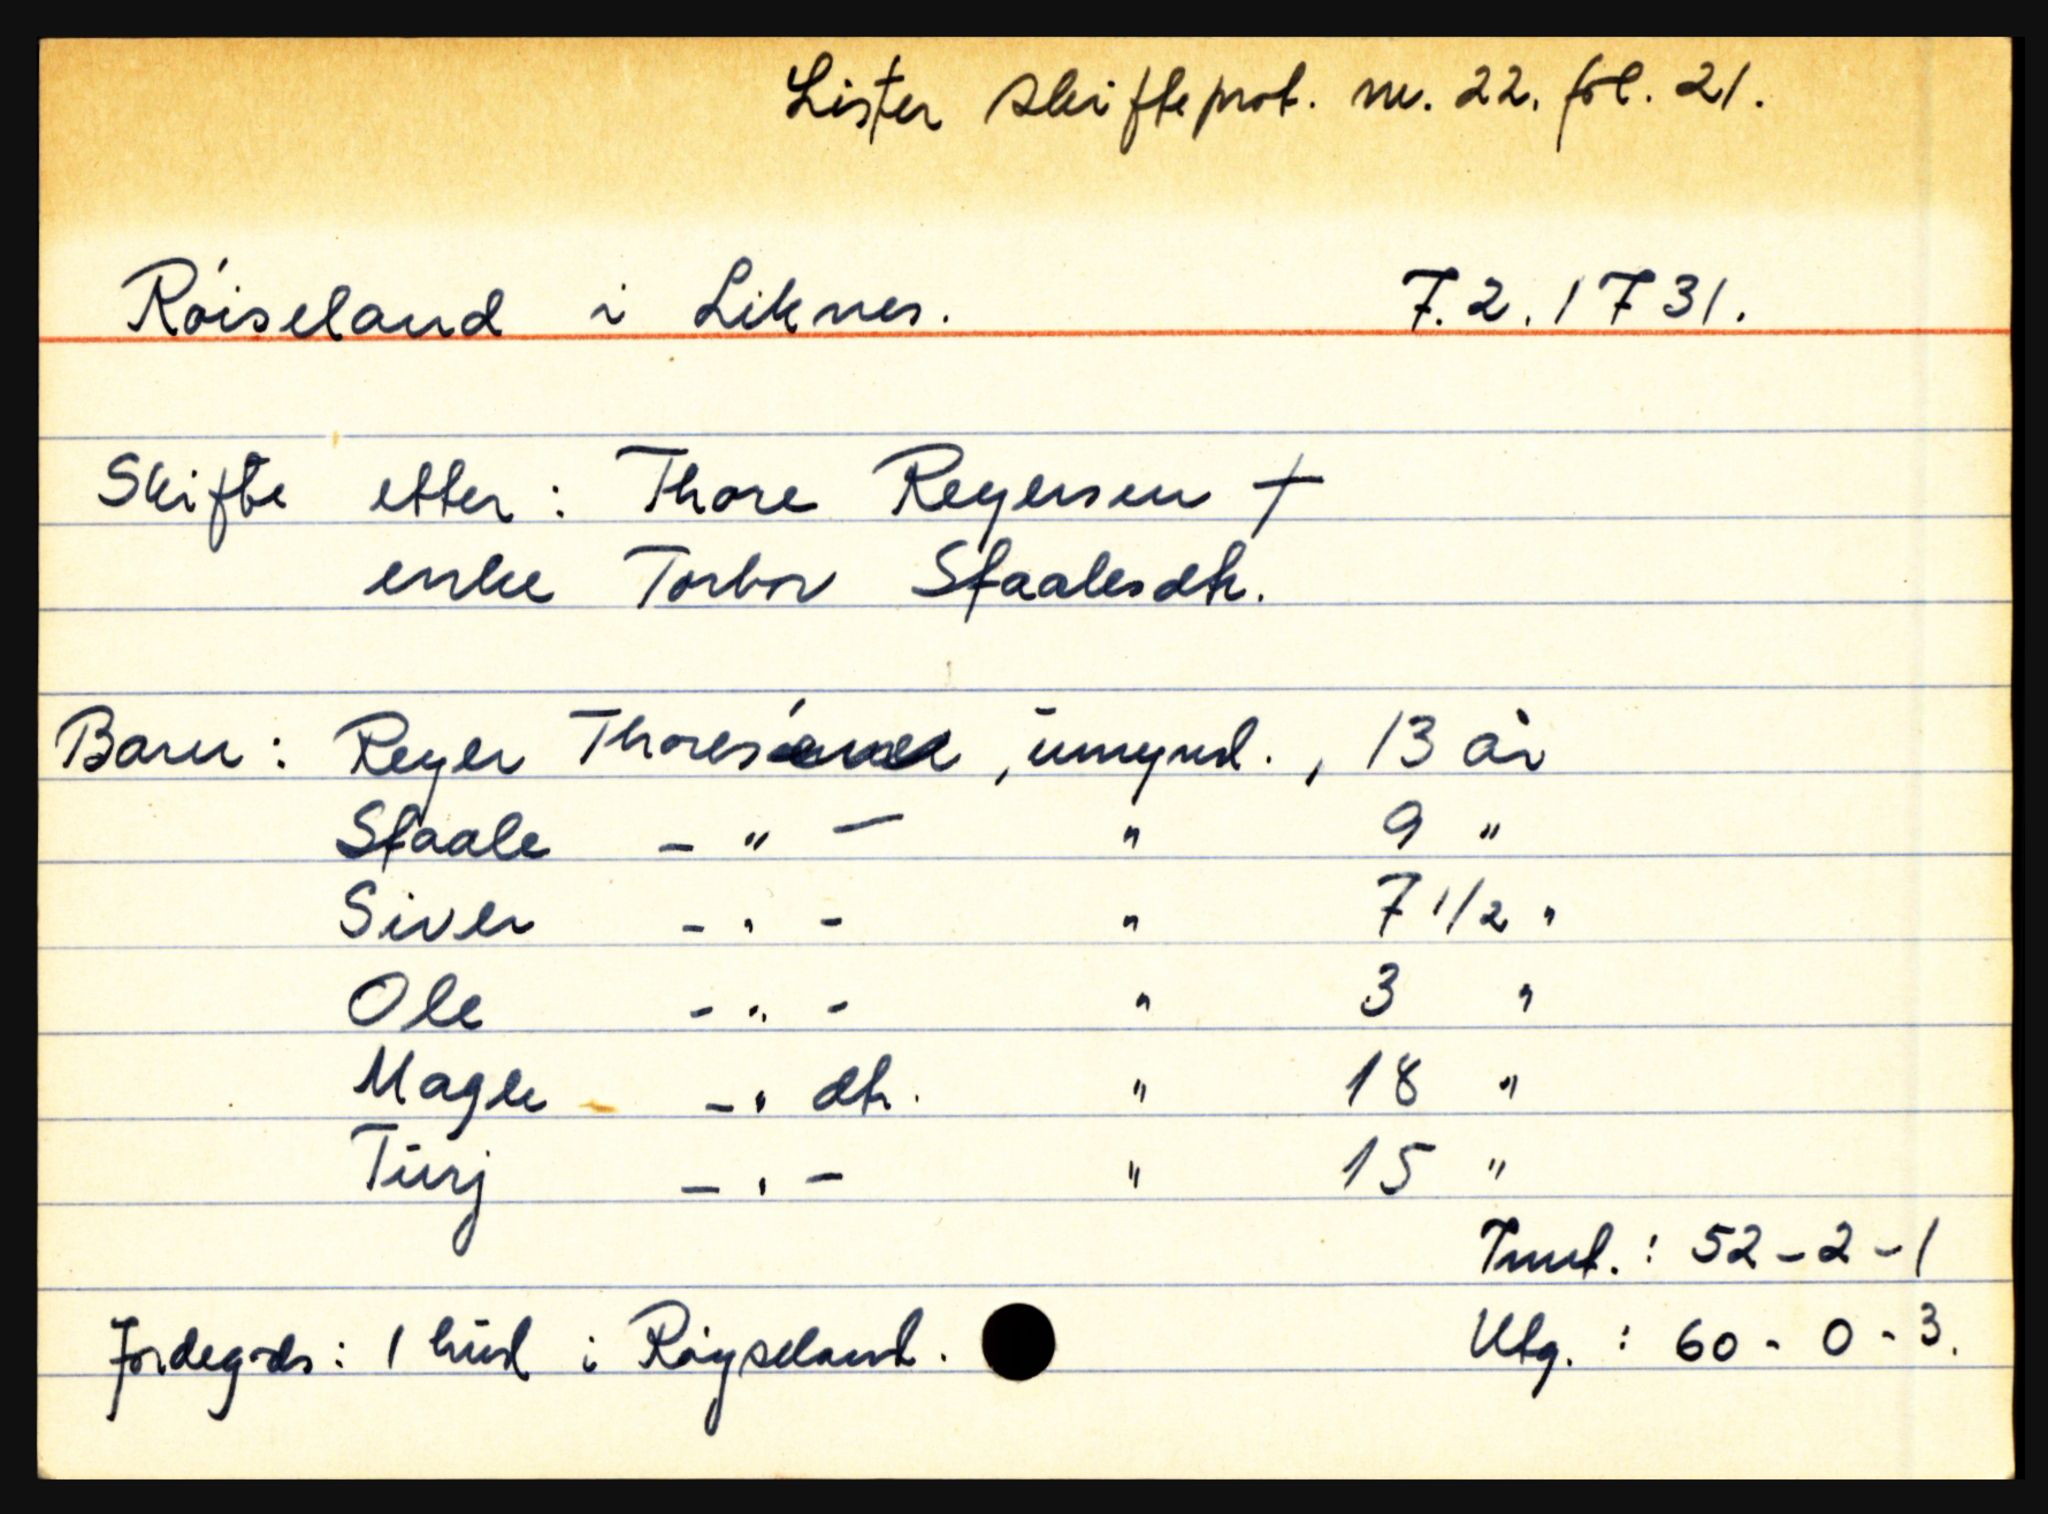 Lister skifteprot. nr. 22. fol. 21.
Róiseland i Liknes. 7.2.1731.
Skifte etter: Thore Reyersen †
enke Torbor Staalesdtr.
Barn: Reyer Thores , umynd. , 13 år
Staale - " - " 9 "
Siver - " - " 7 1/2 "
Ole - " - " 3 "
Magle - " dtr. " 18 "
Turj - " - " 15 "
Innt. : 52-2-1
Jordegods: 1 hud i Röyseland. Utg. : 60-0-3.